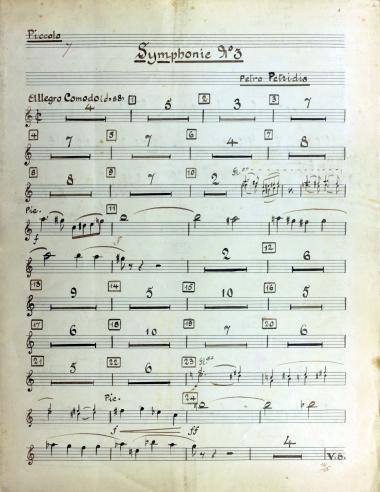 Piccolo
7
Symphonie No 3
Petro Petridis
Allegro Comodo (♩=88) 4 1 5 2 3 3 7
4 7 5 7 6 7 7 7
8 8 9 7 10 2
Pic. 11
f
2 12 6
13 9 14 5 15 10 16 5
17 6 18 10 19 7 20 6
21 5 22 6 23
Pic. 24
f ff
4 V.S.